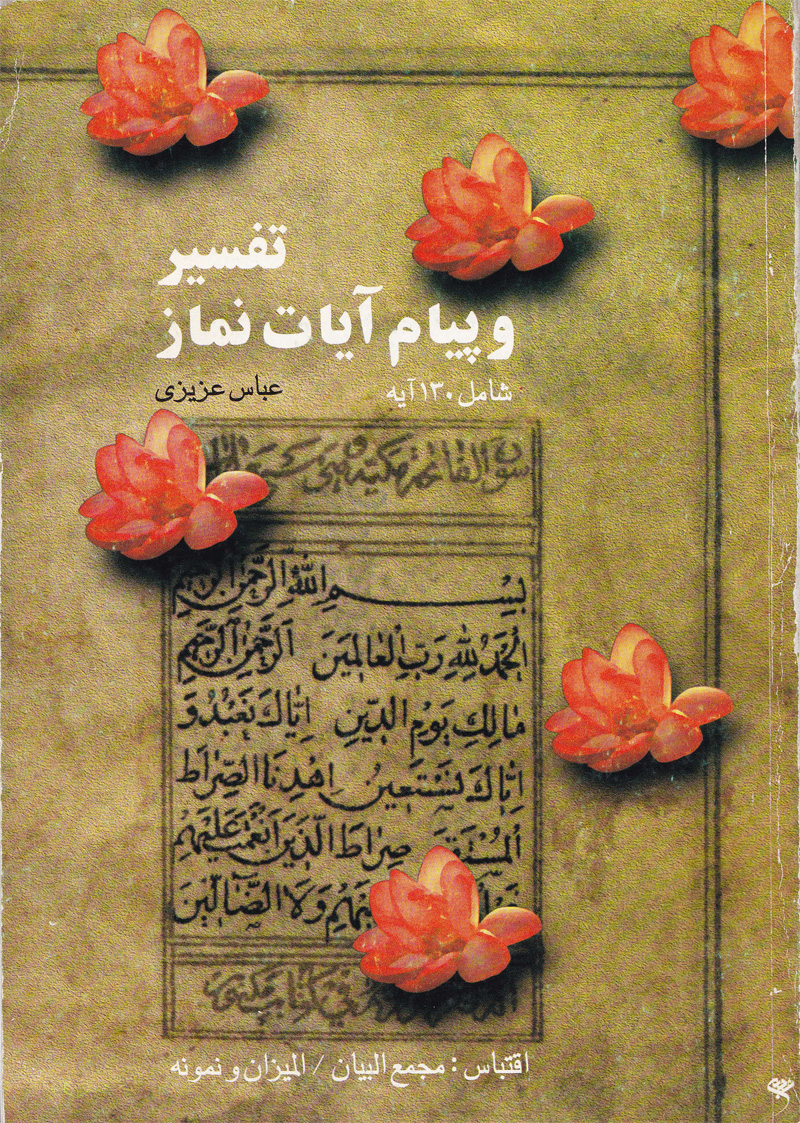 تفسیر
و پیام آیات نماز
شامل ۱۳۰ آیه
عباس عزیزی
سورة الفاتحة مكية وهي سبع
بِسْمِ اللّٰهِ الرَّحْمٰنِ الرَّحِيْمِ
اَلْحَمْدُ لِلّٰهِ رَبِّ الْعٰالَمِيْنَ اَلرَّحْمٰنِ الرَّحِيْمِ
مٰالِكِ يَوْمِ الدِّيْنِ اِيّٰاكَ نَعْبُدُ وَ
اِيّٰاكَ نَسْتَعِيْنُ اِهْدِنَا الصِّرٰاطَ
الْمُسْتَقِيمَ صِرٰاطَ الَّذِيْنَ اَنْعَمْتَ عَلَيْهِمْ
وَلَا الضّٰالِّيْنَ
اقتباس : مجمع البیان / المیزان و نمونه